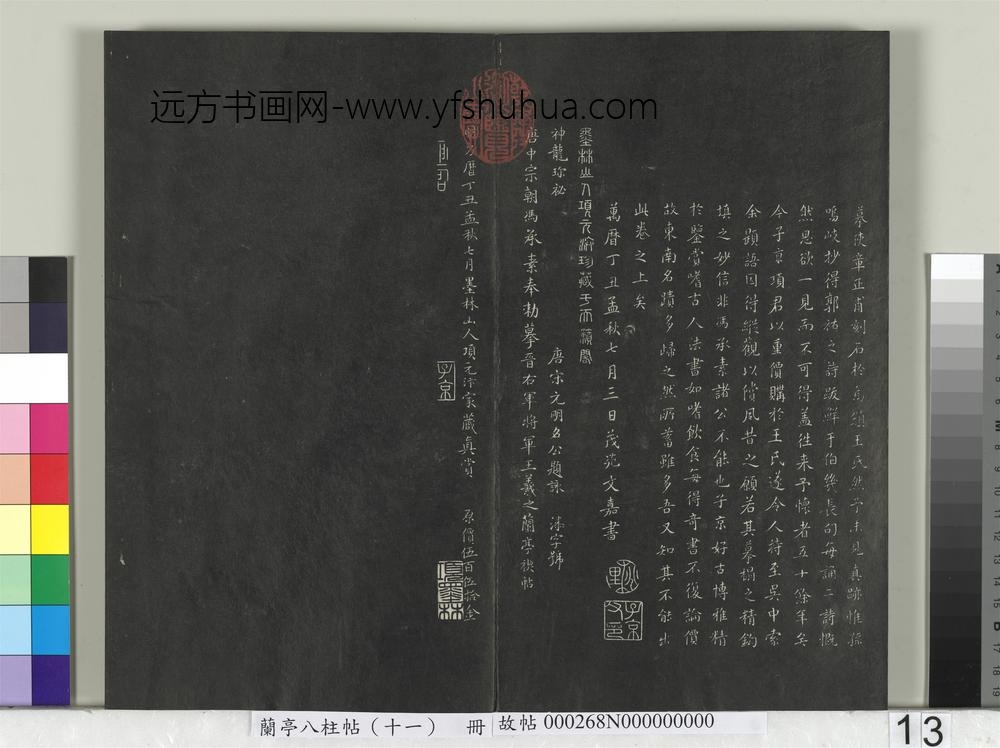 远方书画网-www.yfshuhua.com
摹陜章正甫刻石於烏鎮王氏然予未見真跡惟孫
鳴岐抄得郭祐之詩跋鮮于伯幾長句每誦二詩慨
然思欲一見而不可得蓋往来予懷者五十餘年矣
今子京項君以重價購於王氏遂令人持至吳中索
余題語因得縱觀以償夙昔之願若其摹搨之精鈎
填之妙信非馮承素諸公不能也子京好古博雅精
於鑒賞嗜古人法書如嗜飲食每得奇書不復論價
故東南名蹟多歸之然所蓄雖多吾又知其不能出
此卷之上矣
萬曆丁丑孟秋七月三日茂苑文嘉書
子京
墨林山人項元汴珍藏于天籟閣
神龍珍祕
唐宋元明名公題詠
洙字號
唐中宗朝馮承素奉勑摹晉右軍將軍王羲之蘭亭禊帖
明万曆丁丑孟秋七月墨林山人項元汴家藏真賞
原價伍百伍拾金
子京
項墨林
蘭亭八柱帖（十一） 冊
故帖 000268N000000000
13